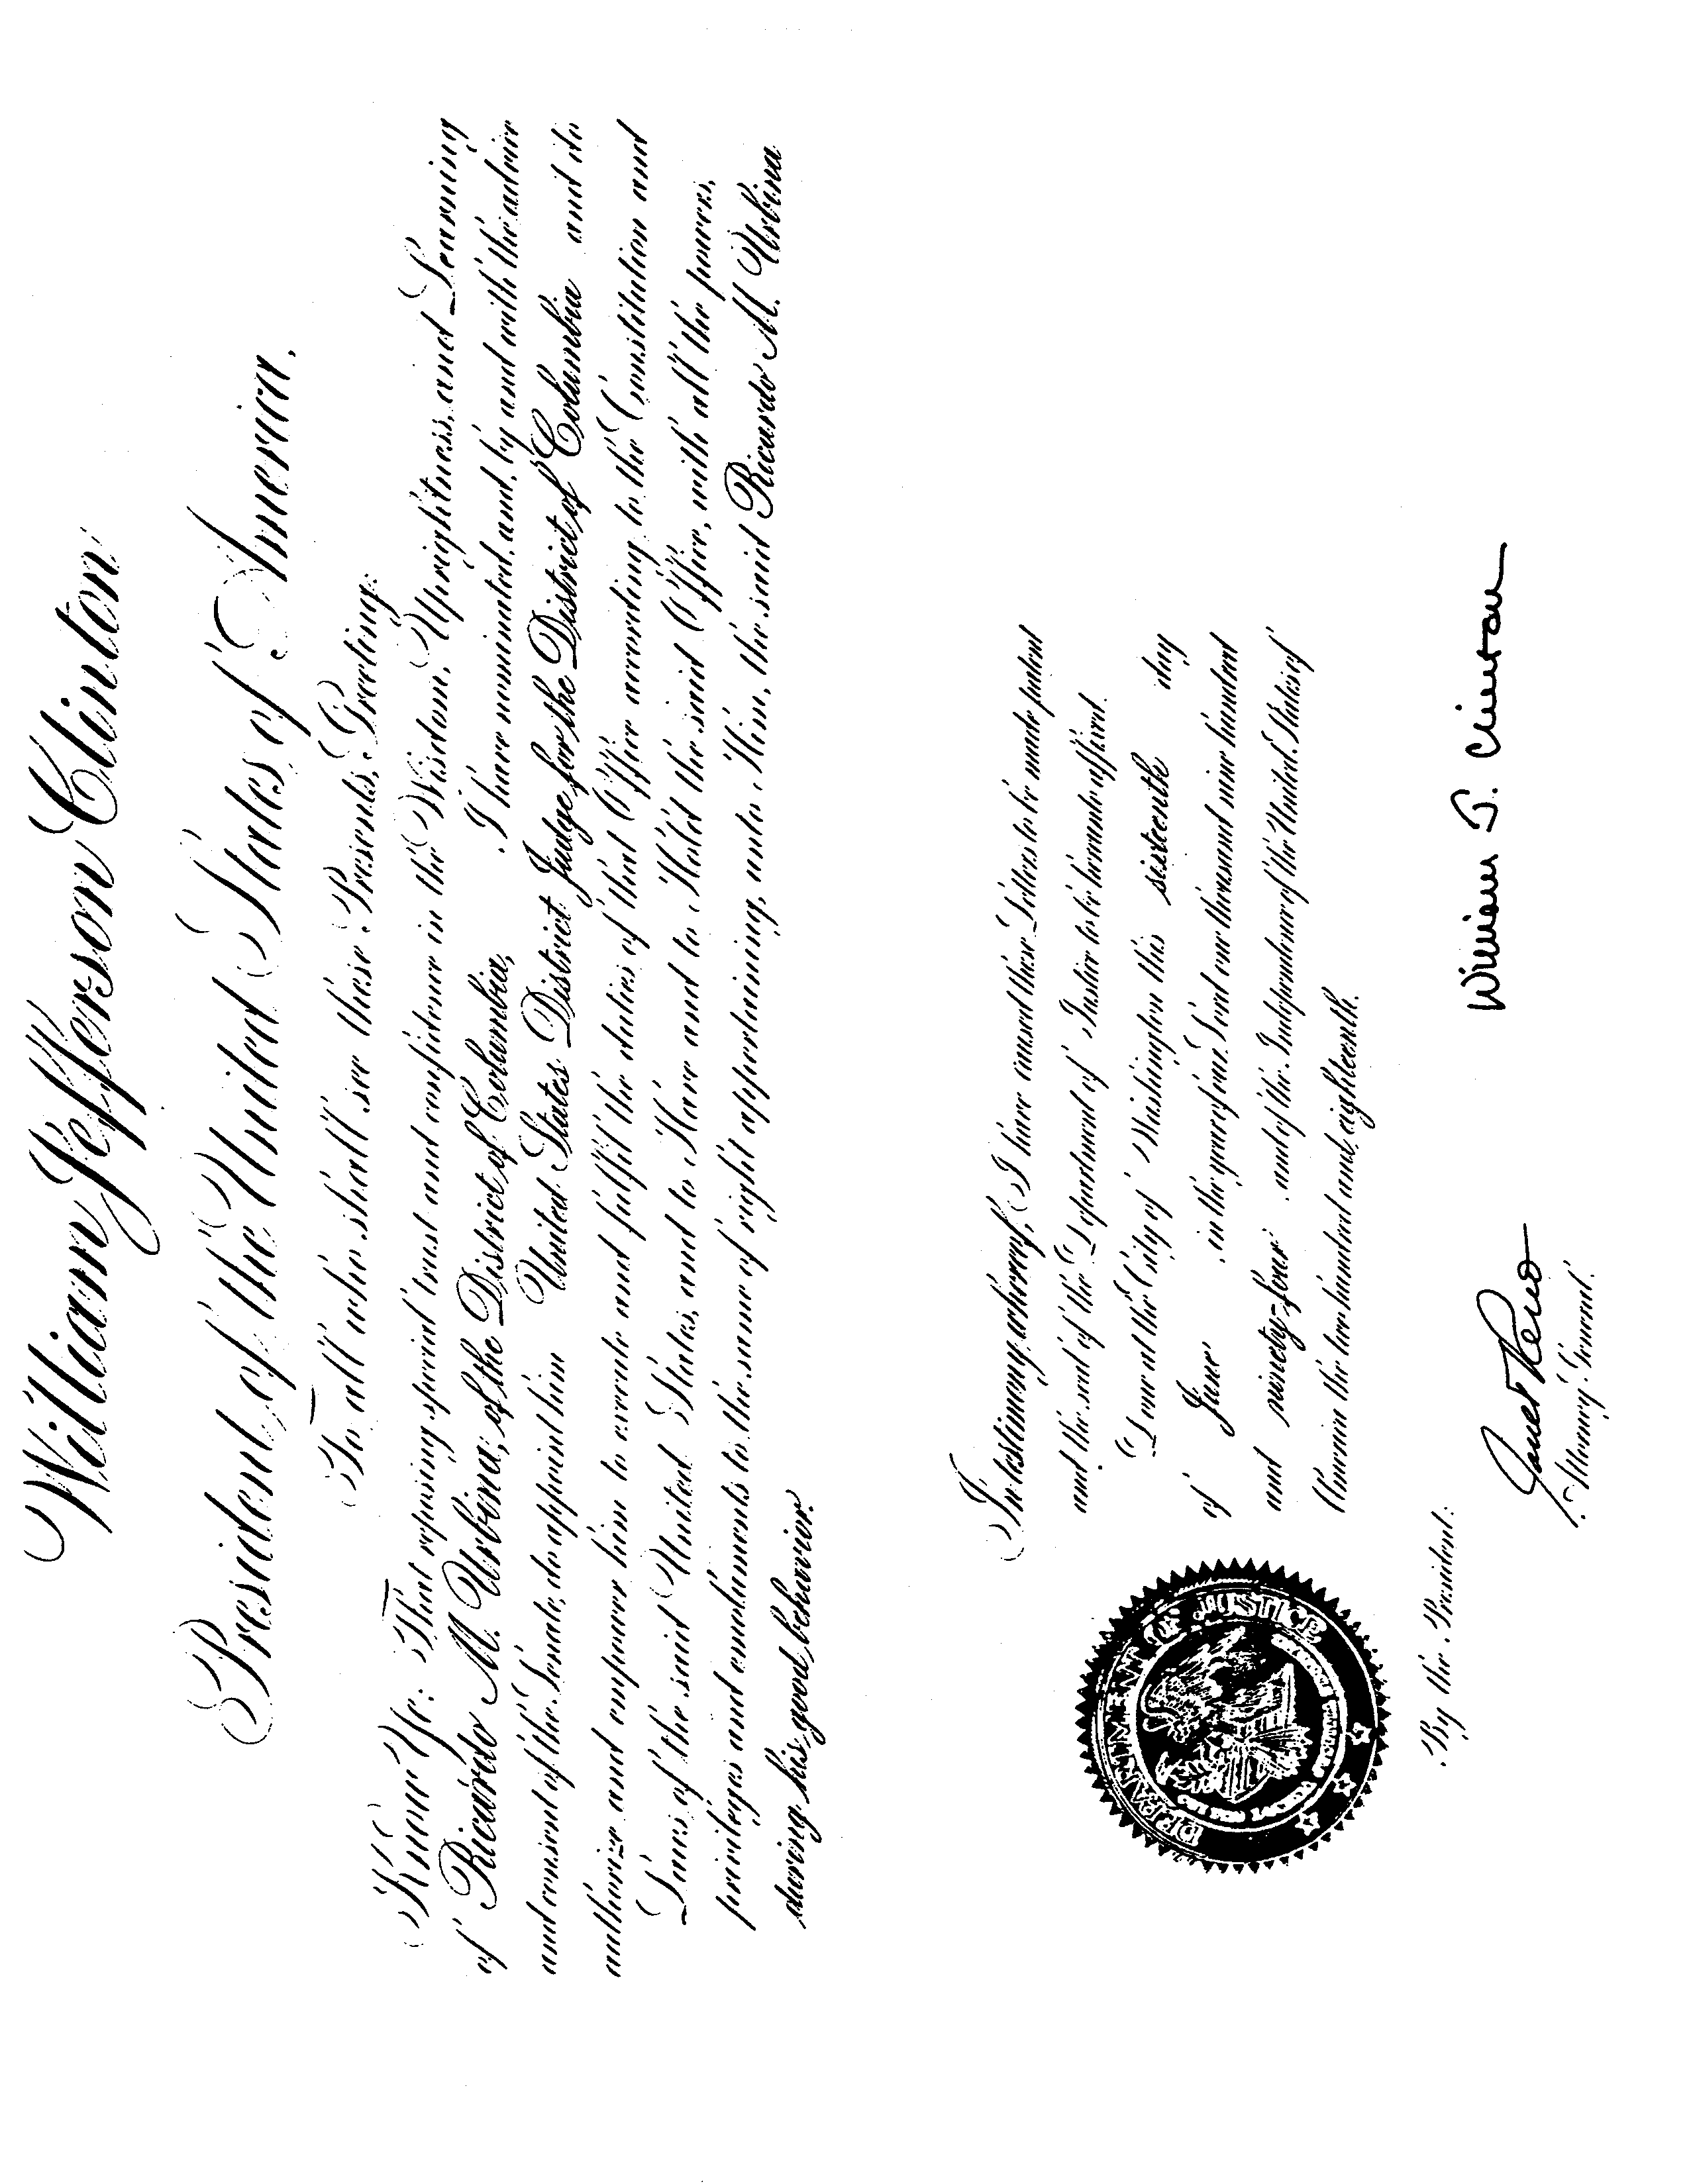 William Jefferson Clinton
President of the United States of America.
To all who shall see these Presents, Greeting:
Know Ye: That reposing special trust and confidence in the Wisdom, Uprightness, and Learning
of Ricardo M. Urbina, of the District of Columbia, I have nominated, and, by and with the advice
and consent of the Senate, do appoint him United States District Judge for the District of Columbia and do
authorize and empower him to execute and fulfil the duties of that Office according to the Constitution and
Laws of the said United States, and to Have and to Hold the said Office, with all the powers,
privileges and emoluments to the same of right appertaining, unto Him, the said Ricardo M. Urbina
during his good behavior.
In testimony whereof, I have caused these Letters to be made patent
and the seal of the Department of Justice to be hereunto affixed.
Done at the City of Washington this sixteenth day
of June in the year of our Lord one thousand nine hundred
and ninety-four and of the Independence of the United States of
America the two hundred and eighteenth.
DEPARTMENT OF JUSTICE
William J. Clinton
By the President:
Janet Reno
Attorney General.